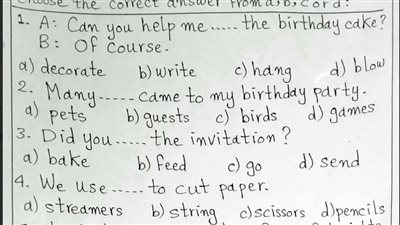 Choose the correct answer from a, b, c or d:
1. A: Can you help me ..... the birthday cake?
B: Of course.
a) decorate b) write c) hang d) blow
2. Many ..... came to my birthday party.
a) pets b) guests c) birds d) games
3. Did you ..... the invitation?
a) bake b) feed c) go d) send
4. We use ..... to cut paper.
a) streamers b) string c) scissors d) pencils